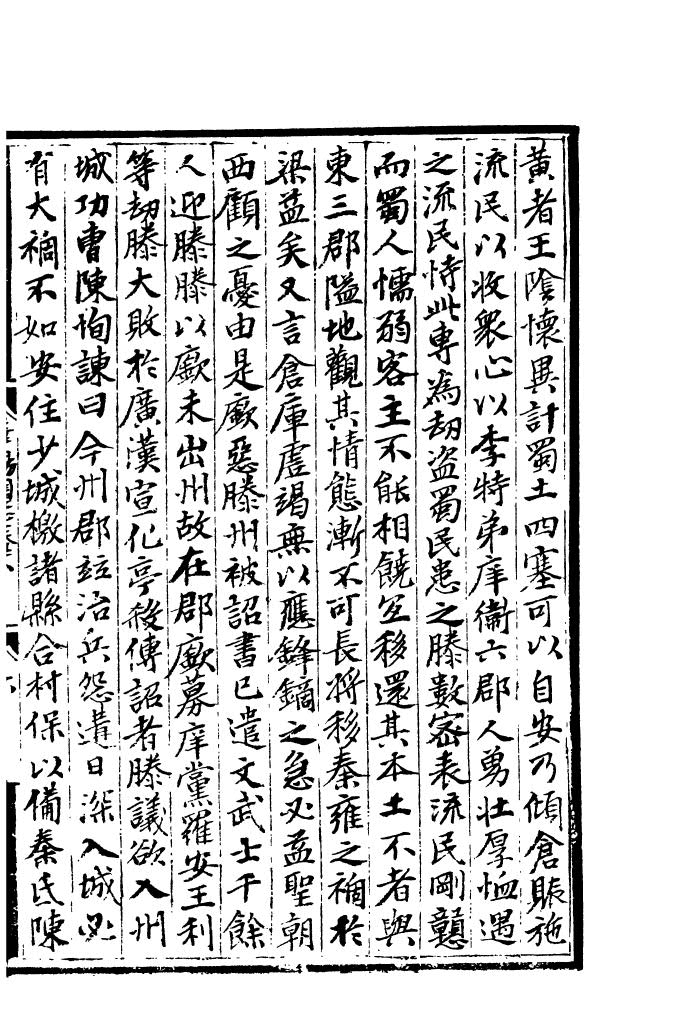 黃者王陰懷異計蜀土四塞可以自安乃傾倉賑施
流民以收衆心以李特弟庠衞六郡人勇壯厚恤遇
之流民恃此專為劫盜蜀民患之滕數密表流民剛戇
而蜀人懦弱客主不能相饒宜移還其本土不者與
東三郡隘地觀其情態漸不可長將移秦雍之禍於
梁益矣又言倉庫虗竭無以應鋒鏑之急必益聖朝
西顧之憂由是廞惡滕州被詔書已遣文武士千餘
人迎滕滕以廞未出州故在郡廞募庠黨羅安王利
等劫滕大敗於廣漢宣化亭殺傳詔者滕議欲入州
城功曹陳恂諫曰今州郡竝治兵怨遘日深入城必
有大禍不如安住少城檄諸縣合村保以備秦氐陳